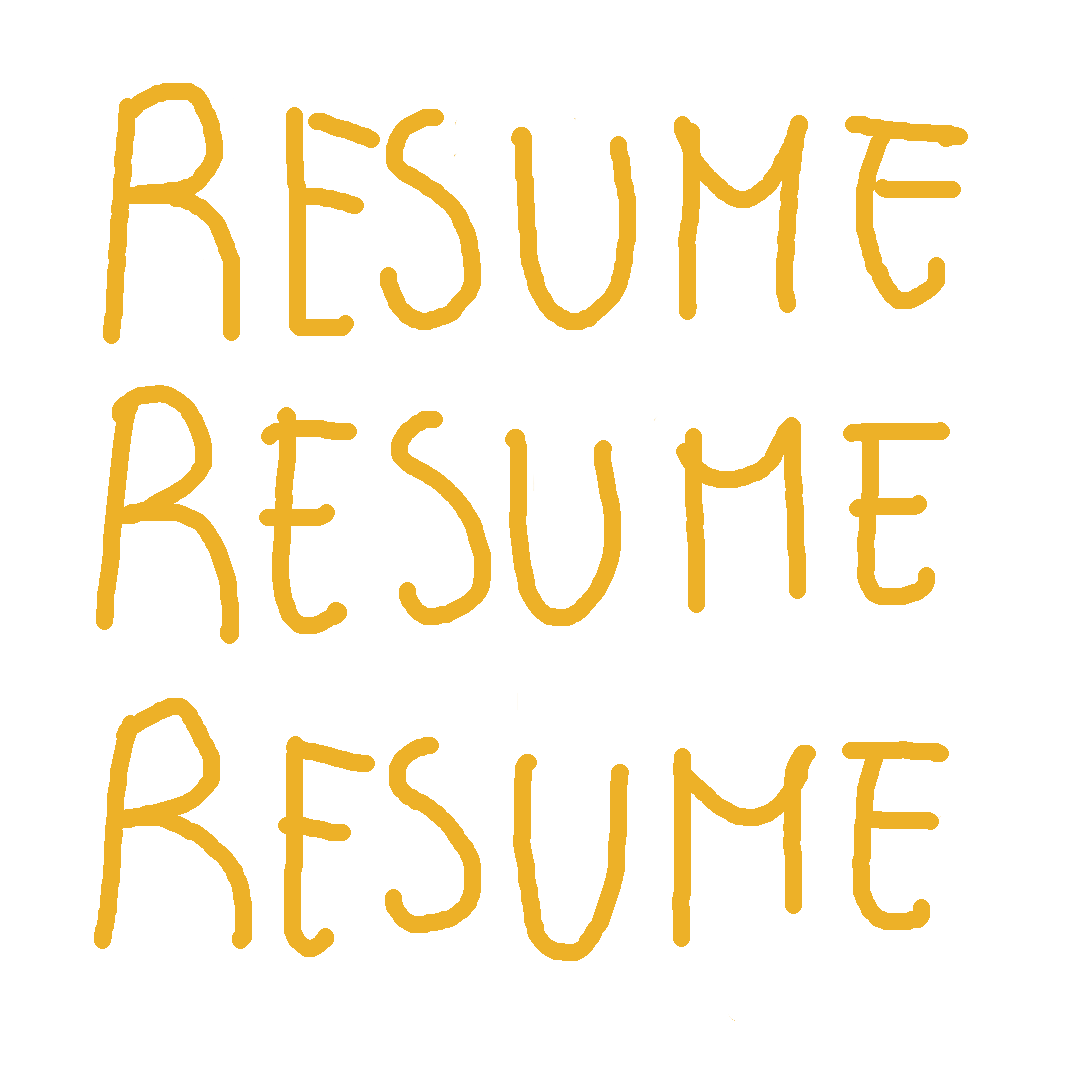 RESUME
RESUME
RESUME